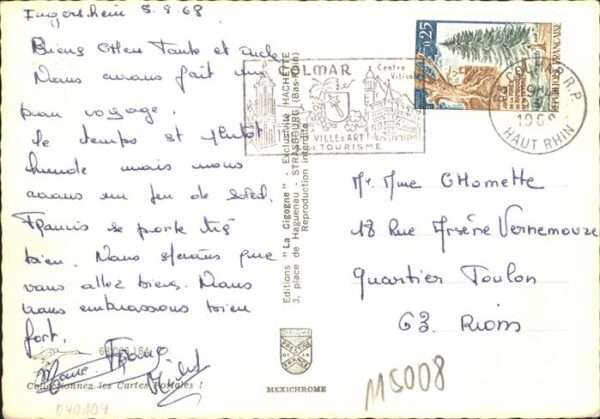 Ingersheim 5.8.68
Biens chers Tante et oncle
Nous avons fait un
bon voyage.
le temps est plutôt
humide mais nous
avons un peu de soleil.
Francis se porte très
bien. Nous espérons que
vous allez biens. Nous
vous embrassons bien
fort.
Francis
Michel
Collectionnez les Cartes Postales !
040104
Editions "La Cigogne" - Exclusivité HACHETTE
3, place de Haguenau - STRASBOURG (Bas-Rhin)
Reproduction interdite
MEXICHROME
COLMAR
Centre
VILLE D'ART
TOURISME
0,25
REPUBLIQUE FRANCAISE
COLMAR R.P.
1968
HAUT RHIN
Mr. Mme CHomette
18 Rue Arsère Vernemouze
Quartier Toulon
63. Riom
M5008